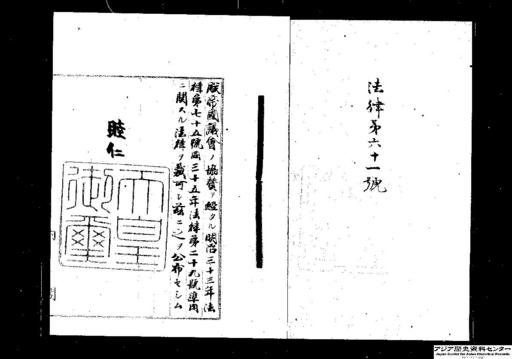 法律第六十一號
朕帝國議會ノ協賛ヲ經タル明治三十三年法
律第七十五號同三十五年法律第二十九號準用
ニ關スル法律ヲ裁可シ茲ニ之ヲ公布セシム
睦仁
天皇
御璽
アジア歴史資料センター
Japan Center for Asian Historical Records